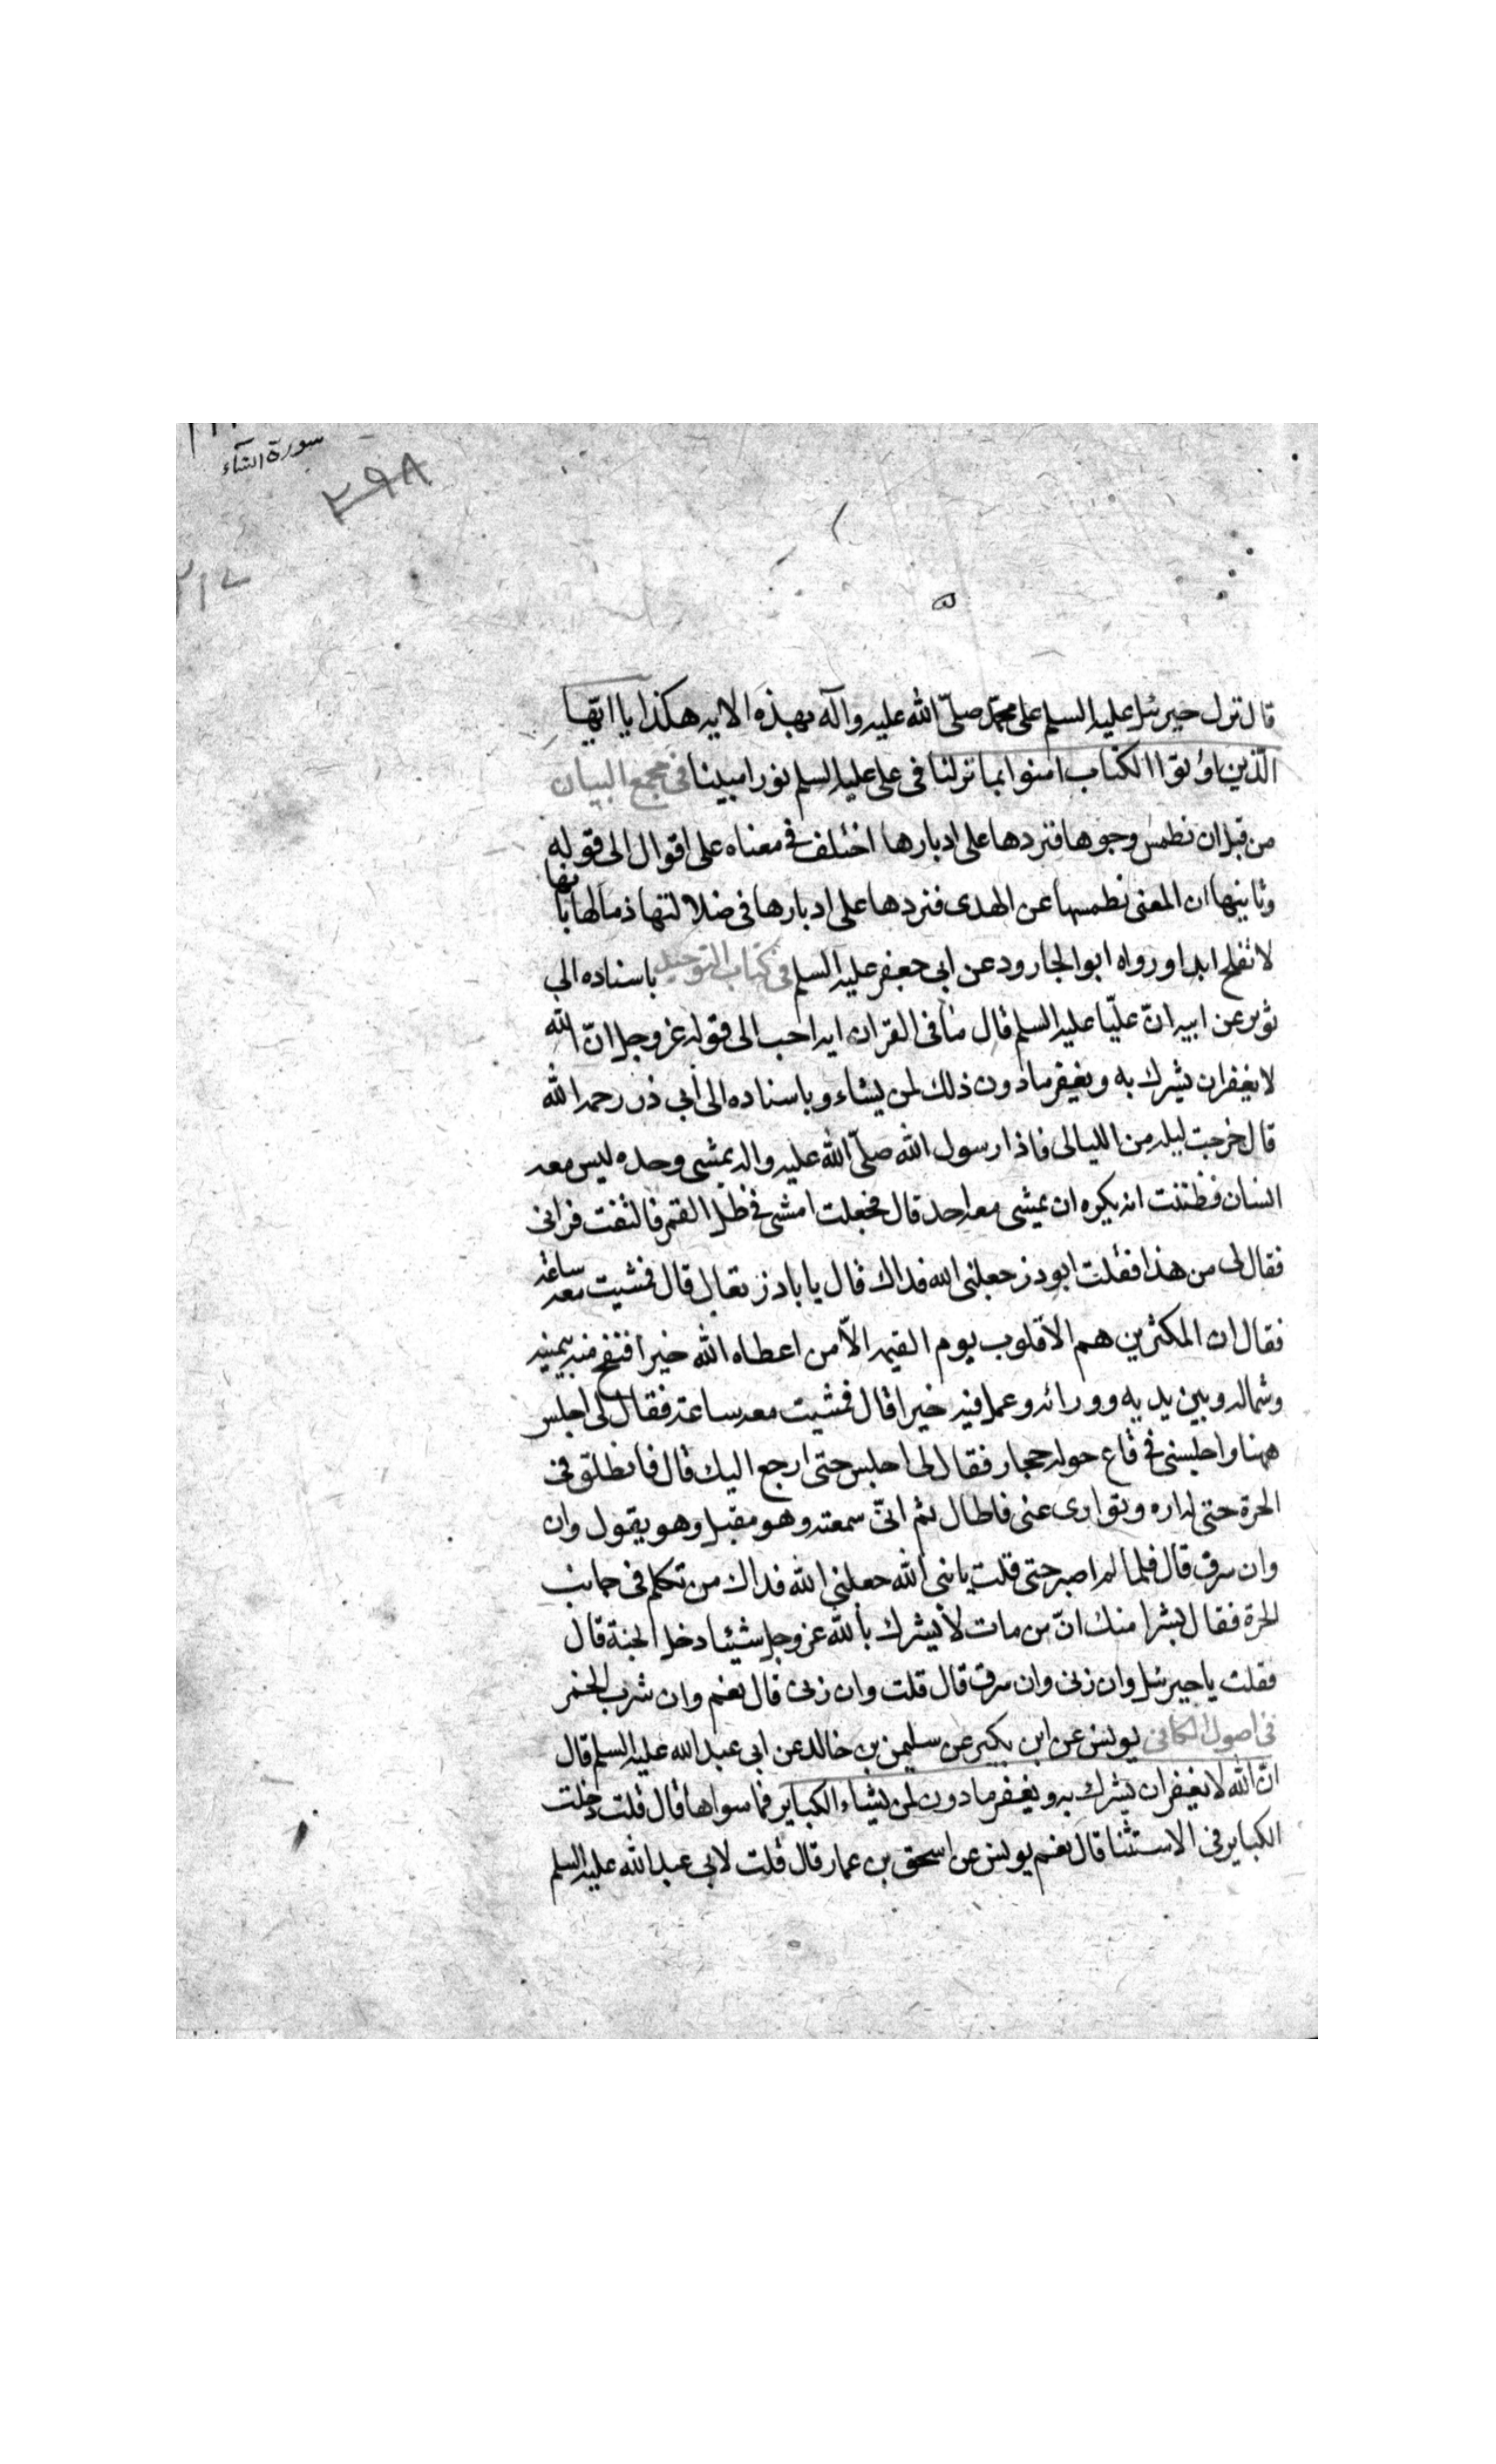 سورة النساء
٢٩٨
قال نزل جبرئيل عليه السلم على محمّد صلّى الله عليه وآله بهذه الاية هكذا يا ايّها
الّذين اوتوا الكتاب امنوا بما نزلنا فى على عليه السلم نورا مبينا فى مجمع البيان
من قبل ان نطمس وجوها فنردها على ادبارها اختلف فى معناه على اقوال الى قوله
وثانيها ان المعنى نطمسها عن الهدى فنردها على ادبارها فى ضلالتها ذما لها بانها
لا تفلح ابدا ورواه ابو الجارود عن ابى جعفر عليه السلم فى كتاب التوحيد باسناده الى
ثوير عن ابيه انّ عليّا عليه السلم قال ما فى القران اية احب الى قوله عز وجل انّ الله
لا يغفر ان يشرك به ويغفر ما دون ذلك لمن يشاء وباسناده الى ابى ذر رحمه الله
قال خرجت ليلة من الليالى فاذا رسول الله صلّى الله عليه واله يمشى وحده ليس معه
انسان فظننت انه يكره ان يمشى معه احد قال فجعلت امشى فى ظل القمر فالتفت فرانى
فقال لى من هذا فقلت ابوذر جعلنى الله فداك قال يا باذر تعال قال فمشيت معه ساعة
فقال ان المكثرين هم الاقلون يوم القيمة الاّ من اعطاه الله خيرا فنفح منه بيمينه
وشماله وبين يديه وورائه وعمل فيه خيرا قال فمشيت معه ساعة فقال لى اجلس
ههنا واجلسنى فى قاع حوله حجار فقال لى اجلس حتى ارجع اليك قال فانطلق فى
الحرة حتى لم اره وتوارى عنى فاطال ثم انّى سمعته وهو مقبل وهو يقول وان
وان سرق قال فلما لم اصبر حتى قلت يا نبى الله جعلنى الله فداك من تكلم فى جانب
الحرة فقال بشرا منك انّ من مات لا يشرك بالله عز وجل شيئا دخل الجنة قال
فقلت يا جبرئيل وان زنى وان سرق قال قلت وان زنى قال نعم وان شرب الخمر
فى اصول الكافى يونس عن ابن بكير عن سليمن بن خالد عن ابى عبد الله عليه السلم قال
انّ الله لا يغفر ان يشرك به ويغفر ما دون لمن يشاء الكباير فما سواها قال قلت دخلت
الكباير فى الاستثنا قال نعم يونس عن اسحق بن عمار قال قلت لابى عبد الله عليه السلم